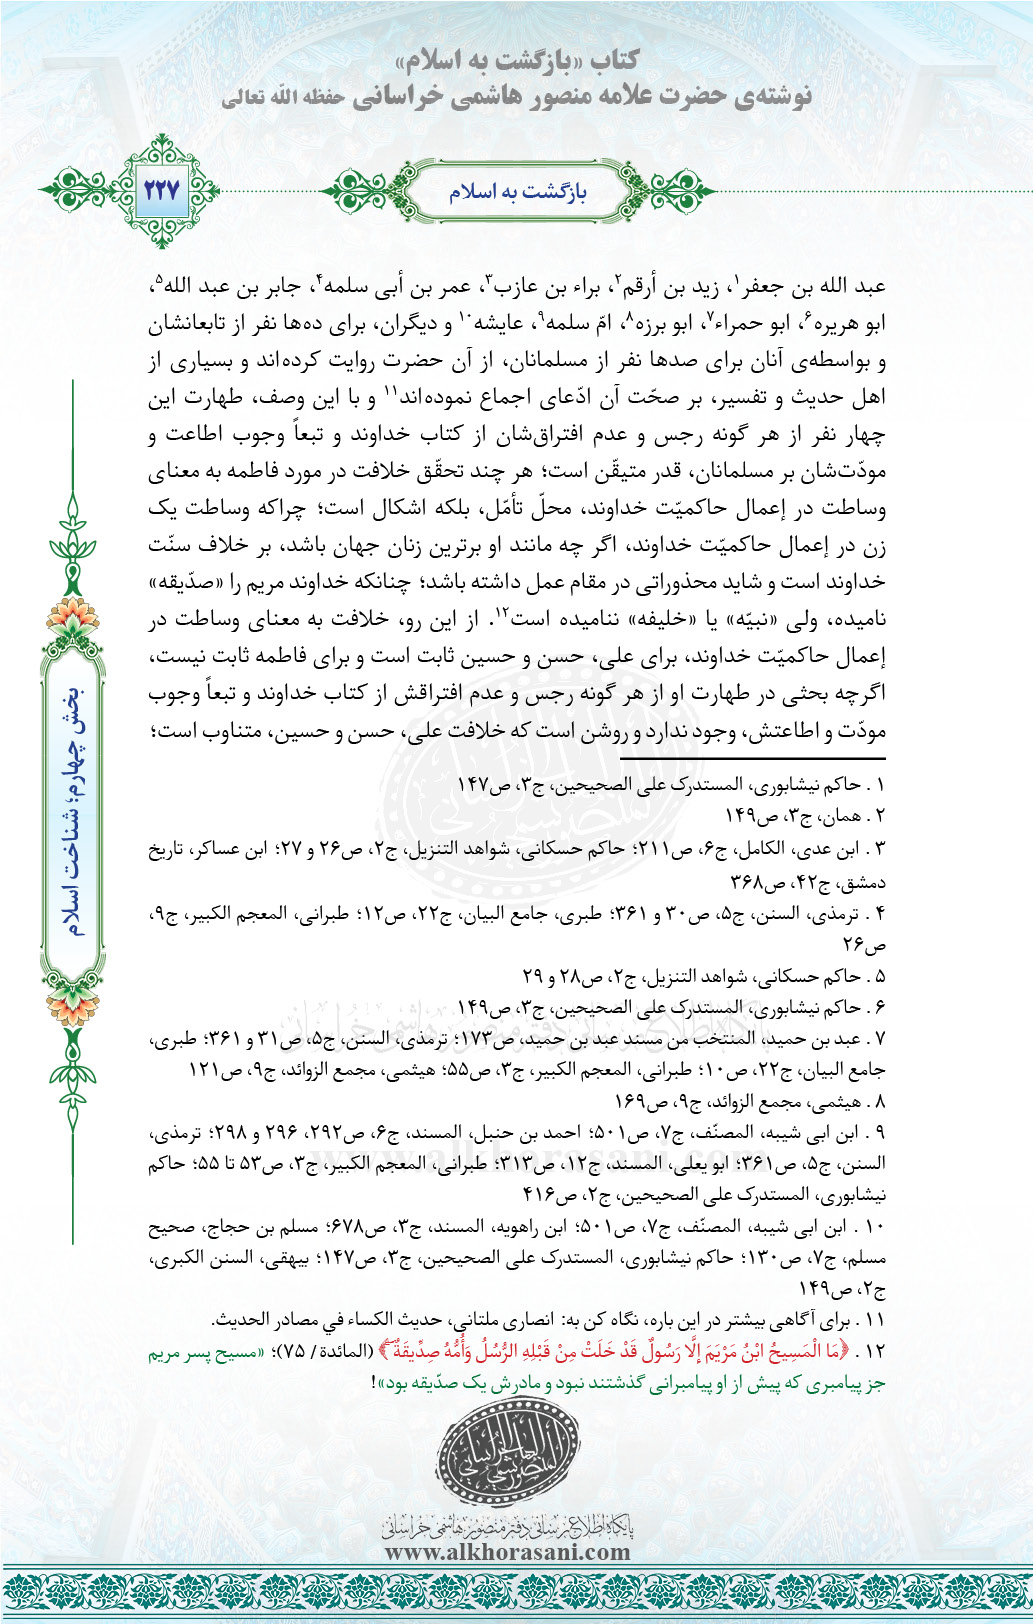 کتاب «بازگشت به اسلام»
نوشته‌ی حضرت علامه منصور هاشمی خراسانی حفظه الله تعالی
۲۲۷
بازگشت به اسلام
عبد الله بن جعفر۱، زید بن أرقم۲، براء بن عازب۳، عمر بن أبی سلمه۴، جابر بن عبد الله۵،
ابو هریره۶، ابو حمراء۷، ابو برزه۸، امّ سلمه۹، عایشه۱۰ و دیگران، برای ده‌ها نفر از تابعانشان
و بواسطه‌ی آنان برای صدها نفر از مسلمانان، از آن حضرت روایت کرده‌اند و بسیاری از
اهل حدیث و تفسیر، بر صحّت آن ادّعای اجماع نموده‌اند۱۱ و با این وصف، طهارت این
چهار نفر از هر گونه رجس و عدم افتراق‌شان از کتاب خداوند و تبعاً وجوب اطاعت و
مودّت‌شان بر مسلمانان، قدر متیقّن است؛ هر چند تحقّق خلافت در مورد فاطمه به معنای
وساطت در إعمال حاکمیّت خداوند، محلّ تأمّل، بلکه اشکال است؛ چراکه وساطت یک
زن در إعمال حاکمیّت خداوند، اگر چه مانند او برترین زنان جهان باشد، بر خلاف سنّت
خداوند است و شاید محذوراتی در مقام عمل داشته باشد؛ چنانکه خداوند مریم را «صدّیقه»
نامیده، ولی «نبیّه» یا «خلیفه» ننامیده است۱۲. از این رو، خلافت به معنای وساطت در
إعمال حاکمیّت خداوند، برای علی، حسن و حسین ثابت است و برای فاطمه ثابت نیست،
اگرچه بحثی در طهارت او از هر گونه رجس و عدم افتراقش از کتاب خداوند و تبعاً وجوب
مودّت و اطاعتش، وجود ندارد و روشن است که خلافت علی، حسن و حسین، متناوب است؛
۱ . حاکم نیشابوری، المستدرک علی الصحیحین، ج۳، ص۱۴۷
۲ . همان، ج۳، ص۱۴۹
۳ . ابن عدی، الکامل، ج۶، ص۲۱۱؛ حاکم حسکانی، شواهد التنزیل، ج۲، ص۲۶ و ۲۷؛ ابن عساکر، تاریخ
دمشق، ج۴۲، ص۳۶۸
۴ . ترمذی، السنن، ج۵، ص۳۰ و ۳۶۱؛ طبری، جامع البیان، ج۲۲، ص۱۲؛ طبرانی، المعجم الکبیر، ج۹،
ص۲۶
۵ . حاکم حسکانی، شواهد التنزیل، ج۲، ص۲۸ و ۲۹
۶ . حاکم نیشابوری، المستدرک علی الصحیحین، ج۳، ص۱۴۹
۷ . عبد بن حمید، المنتخب من مسند عبد بن حمید، ص۱۷۳؛ ترمذی، السنن، ج۵، ص۳۱ و ۳۶۱؛ طبری،
جامع البیان، ج۲۲، ص۱۰؛ طبرانی، المعجم الکبیر، ج۳، ص۵۵؛ هیثمی، مجمع الزوائد، ج۹، ص۱۲۱
۸ . هیثمی، مجمع الزوائد، ج۹، ص۱۶۹
۹ . ابن ابی شیبه، المصنّف، ج۷، ص۵۰۱؛ احمد بن حنبل، المسند، ج۶، ص۲۹۲، ۲۹۶ و ۲۹۸؛ ترمذی،
السنن، ج۵، ص۳۶۱؛ ابو یعلی، المسند، ج۱۲، ص۳۱۳؛ طبرانی، المعجم الکبیر، ج۳، ص۵۳ تا ۵۵؛ حاکم
نیشابوری، المستدرک علی الصحیحین، ج۲، ص۴۱۶
۱۰ . ابن ابی شیبه، المصنّف، ج۷، ص۵۰۱؛ ابن راهویه، المسند، ج۳، ص۶۷۸؛ مسلم بن حجاج، صحیح
مسلم، ج۷، ص۱۳۰؛ حاکم نیشابوری، المستدرک علی الصحیحین، ج۳، ص۱۴۷؛ بیهقی، السنن الکبری،
ج۲، ص۱۴۹
۱۱ . برای آگاهی بیشتر در این باره، نگاه کن به: انصاری ملتانی، حدیث الکساء في مصادر الحدیث.
۱۲ . ﴿مَا الْمَسِيحُ ابْنُ مَرْيَمَ إِلَّا رَسُولٌ قَدْ خَلَتْ مِنْ قَبْلِهِ الرُّسُلُ وَأُمُّهُ صِدِّيقَةٌ ۖ﴾ (المائدة/ ۷۵)؛ «مسیح پسر مریم
جز پیامبری که پیش از او پیامبرانی گذشتند نبود و مادرش یک صدّیقه بود»!
بخش چهارم؛ شناخت اسلام
پایگاه اطلاع رسانی دفتر منصور هاشمی خراسانی
www.alkhorasani.com
المنصور الهاشمی الخراسانی
پایگاه اطلاع رسانی دفتر منصور هاشمی خراسانی
www.alkhorasani.com